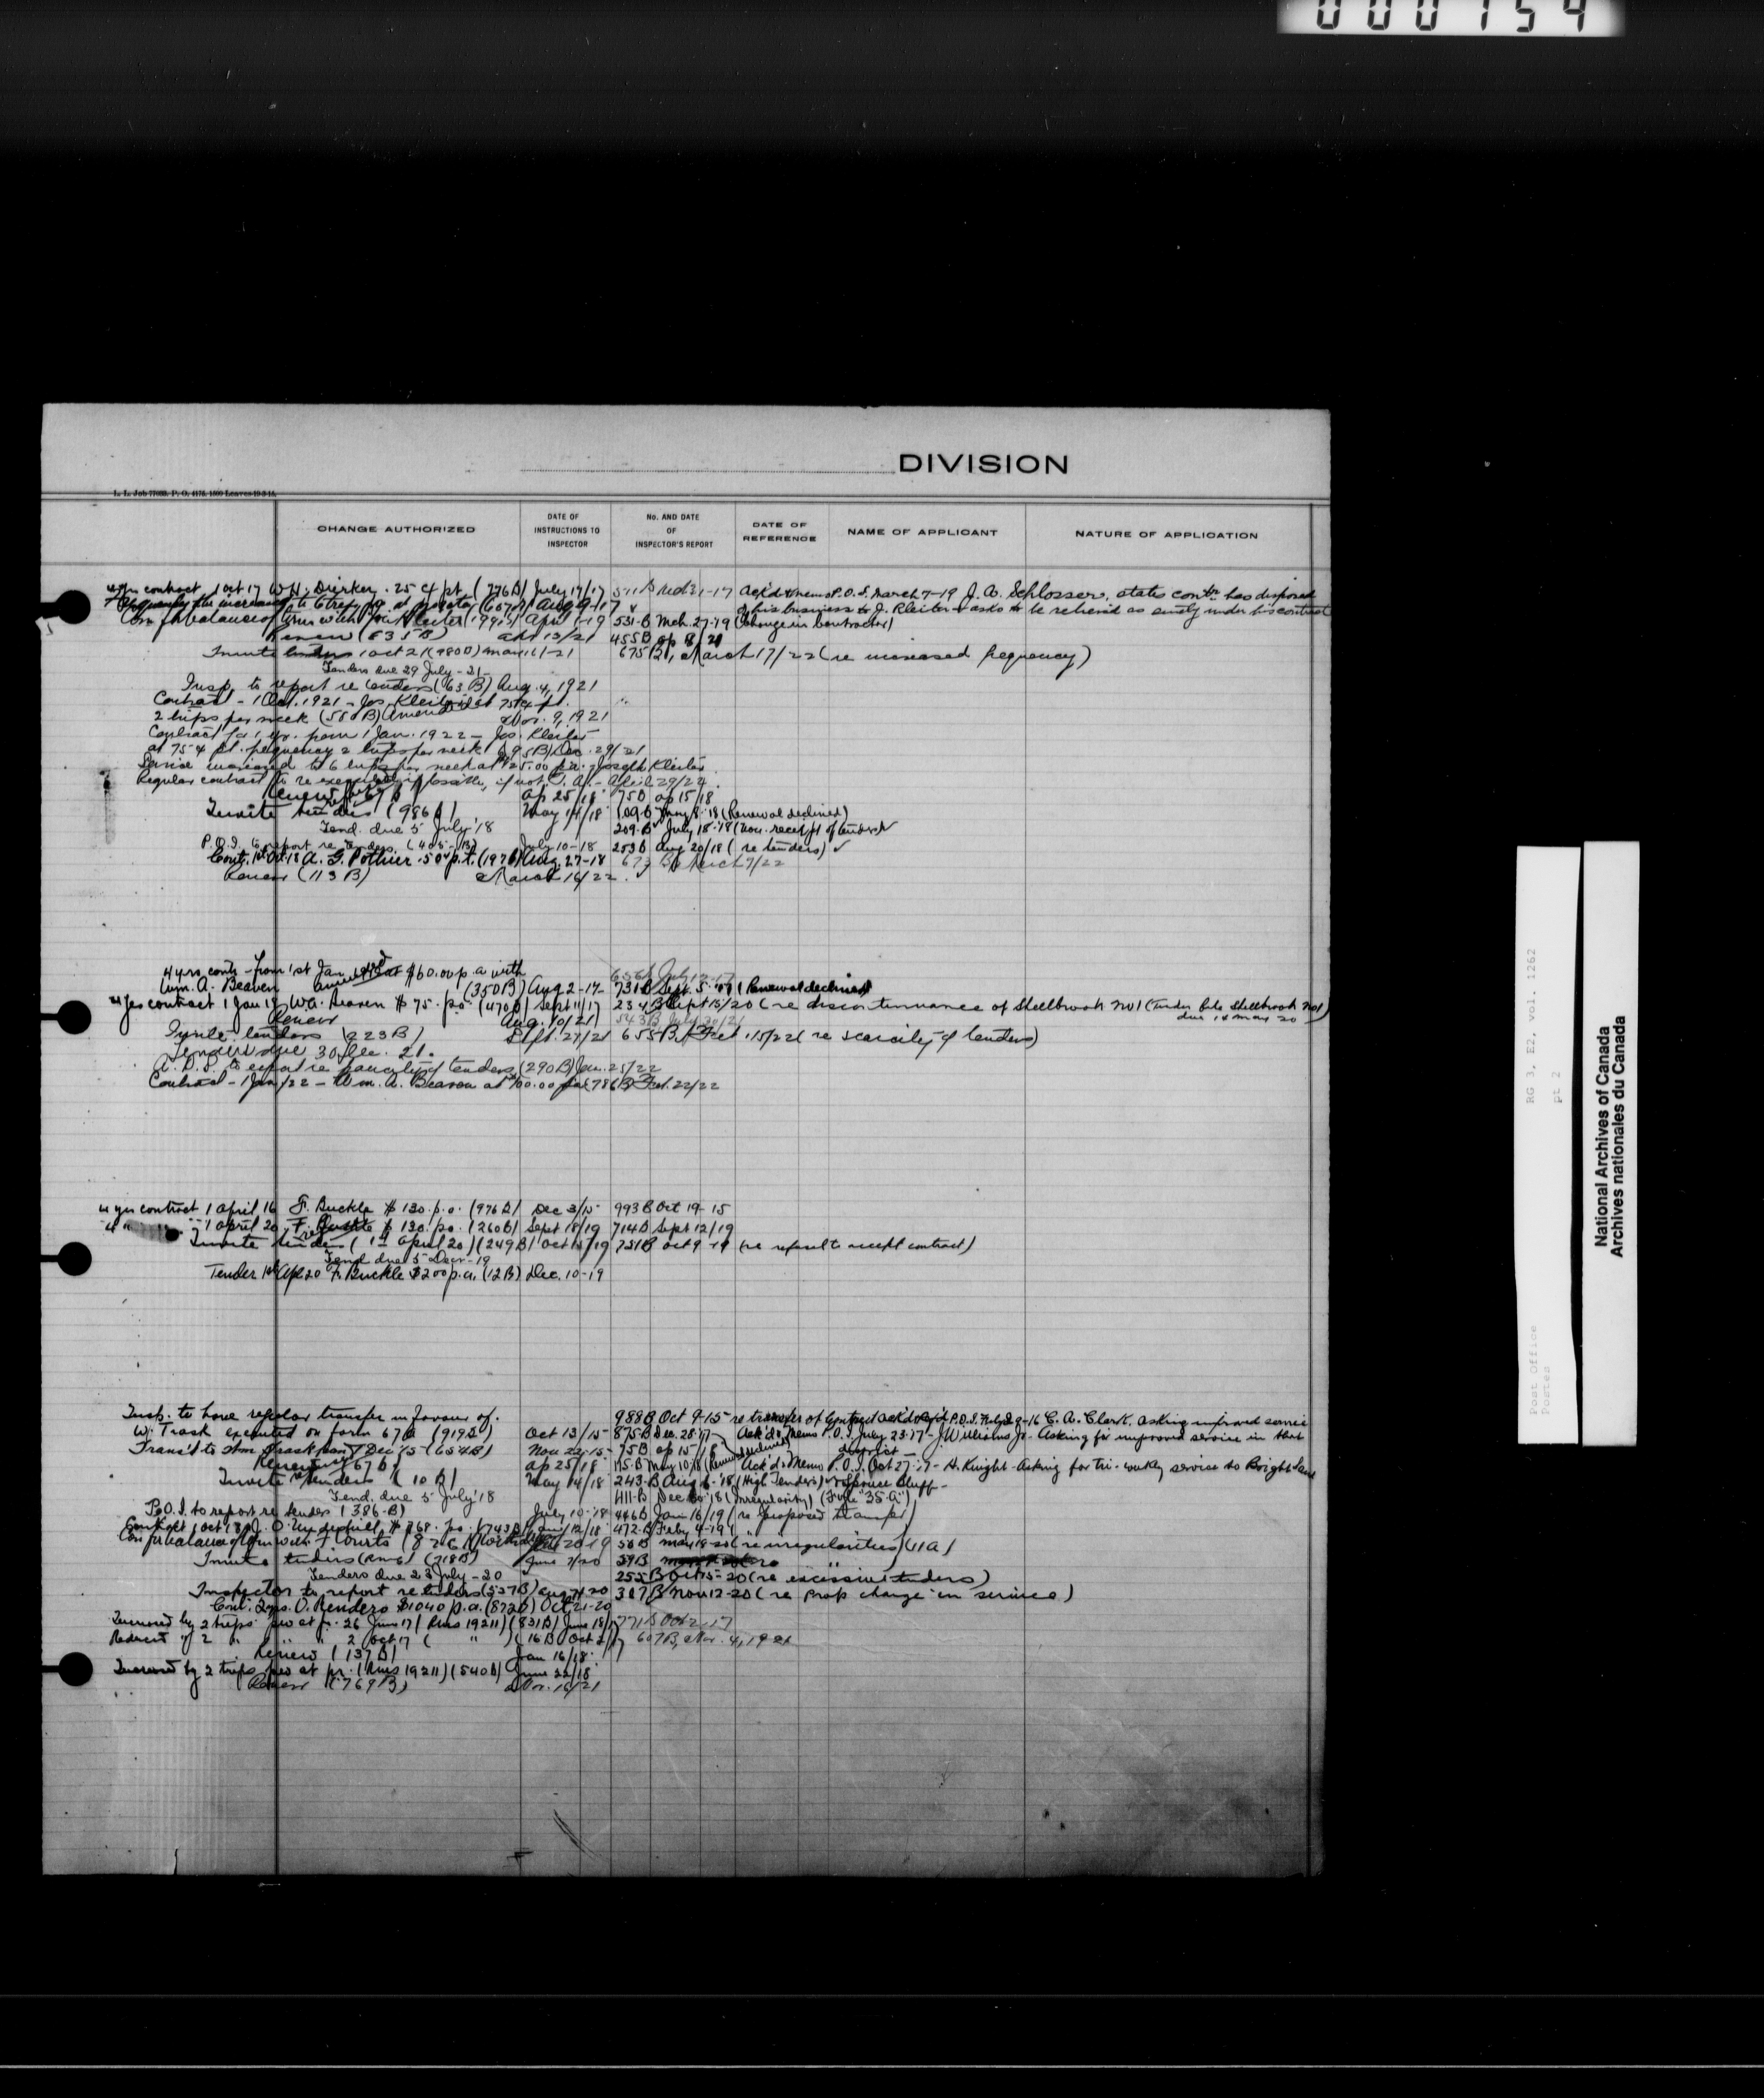 000154
DIVISION
L. L. Job 77093. P. O. 4175. 1500 Leaves-19-3-15.
CHANGE AUTHORIZED
DATE OF INSTRUCTIONS TO INSPECTOR
No. AND DATE OF INSPECTOR'S REPORT
DATE OF REFERENCE
NAME OF APPLICANT
NATURE OF APPLICATION
4 yrs contract 1 Oct 17 W.H. Dierker .25 c/ pt (776B) July 17/17 Ack'd memo P.O.S. March 7-19 J. A. Schlosser, states contr. has disposed
of his business to J. Kleiter & asks to be relieved as surety under his contract
April 1-19 531-B Mch. 27-19 (Change in Contractor)
Renew (835B) 455B ap 8/21
Invite tenders 1 Oct 21 (980B) 675B, March 17/22 (re increased frequency)
Tenders due 29 July-21
Insp. to report re tenders (63 B) Aug. 4, 1921
Contract - 1 Oct. 1921 - Jos. Kleiter at 75¢ pt.
2 trips per week (580B) Amended Nov. 9, 1921
Contract for 1 yr. from 1 Jan. 1922 - Jos. Kleiter
at 75¢ pt. frequency 2 trips per week Dec. 29/21
Service increased to 6 trips per week at Joseph Kleiter
Regular contract to re executed if possible, if not April 29/22
Renew 67 B Ap 25/18 75B ap 15/18
Invite tenders (986B) May 14/18 109-B May 8-18 (Renewal declined)
Tend. due 5 July '18 209-B July 18-'18 (non. receipt of tenders)
P.O.I. to report re tenders (405-B) July 10-18 253B Aug 20/18 (re tenders)
Cont. 1st Oct. 18 A. G. Pothier .50 p.t. (197B) Aug. 27-18 673 B March 7/22
Renew (113 B) March 16/22
4 yrs contr. from 1st Jan at $60.00 p.a. with
Wm. A. Beaven (350B) Aug 2-17- 731B Sept. 5-'17 (Renewal declined)
4 yrs contract 1 Jan 18 W.A. Beaven $75. pa (470B) Sept 11/17 234B Sept 15/20 (re discontinuance of Shellbrook No1 (Tender
Renew Aug. 10/21 543B July 30/21
Invite tenders (223B) Sept. 27/21 655B, Feb. 15/22 (re scarcity of tenders)
Tenders due 30 Dec. 21.
to report re paucity of tenders (290B) Jan. 25/22
Contract - 1 Jan/22 - Wm. A. Beaven at $100.00 pa (786B) Feb. 22/22
4 yrs contract 1 April 16 F. Buckle $130. p.a. (976B) Dec 3/15 993B Oct 19-15
4 " " 1 April 20 F. Buckle $130. pa. (260B) Sept 18/19 714B Sept 12/19
Invite tenders (1st April 20) (249B) 751B Oct 9-19 (re refusal to accept contract)
Tend due 5 Decr-19
Tender 1st Apl 20 F. Buckle $200 p.a. (12B) Dec. 10-19
Insp. to have regular transfer in favour of. 988B Oct 9-15 re transfer of Contract P.O.S. C. A. Clark. asking improved service
W. Trask executed on form 67B (919B) Oct 13/15 875B Dec. 28-17 Ack'd Memo P.O.I. July 23-17 - J. Williams Jr. Asking for improved service in that
district -
Nov 22-15 75B ap 15/18
Renew 67 B Ap 25/18 115-B May 10-18 Ack'd Memo P.O.I. Oct 27-17 - H. Knight - Asking for tri-weekly service to Bright Sand
Invite tenders (10 B) May 14/18 243-B Aug 6-'18 (High Tenders) Spruce Bluff-
Tend. due 5 July '18 411-B Dec '18 (Irregularity) (File "35-A")
P.O.I. to report re tender (386-B) July 10-'18 446B Jan 16/19 (re proposed transfer)
Contract 1 Oct 18 O. Underhill $768. pa. (743B) 472-B Feby 4-19
Con for balance of term with F. Courts 50B May 18-20 (re irregularities) (11A)
Invite tenders (RMS) (718B) June 2/20 59B
Tenders due 23 July-20 255B Oct 5-20 (re excessive tenders)
Inspector to report re tenders (537B) Aug 20 327B Nov 12-20 (re prop change in service)
Cont. 2 yrs. O. Renders $1040 p.a. (872B) Oct 21-20
Increased by 2 trips pw at pr. 26 June 17 (RMS 19211) (831B) June 18/17 771B Oct 2-17
Reduced " 2 " " " 2 Oct 17 ( " ) (16B Oct 2/17 607B, Nov. 4, 1921
Renew (137B) Jan 16/18
Increased by 2 trips pw at pr. (RMS 19211) (540B) June 22/18
Renew (769B) Nov. 16/21
RG 3, E2, vol. 1262
pt 2
Post Office
Postes
National Archives of Canada
Archives nationales du Canada